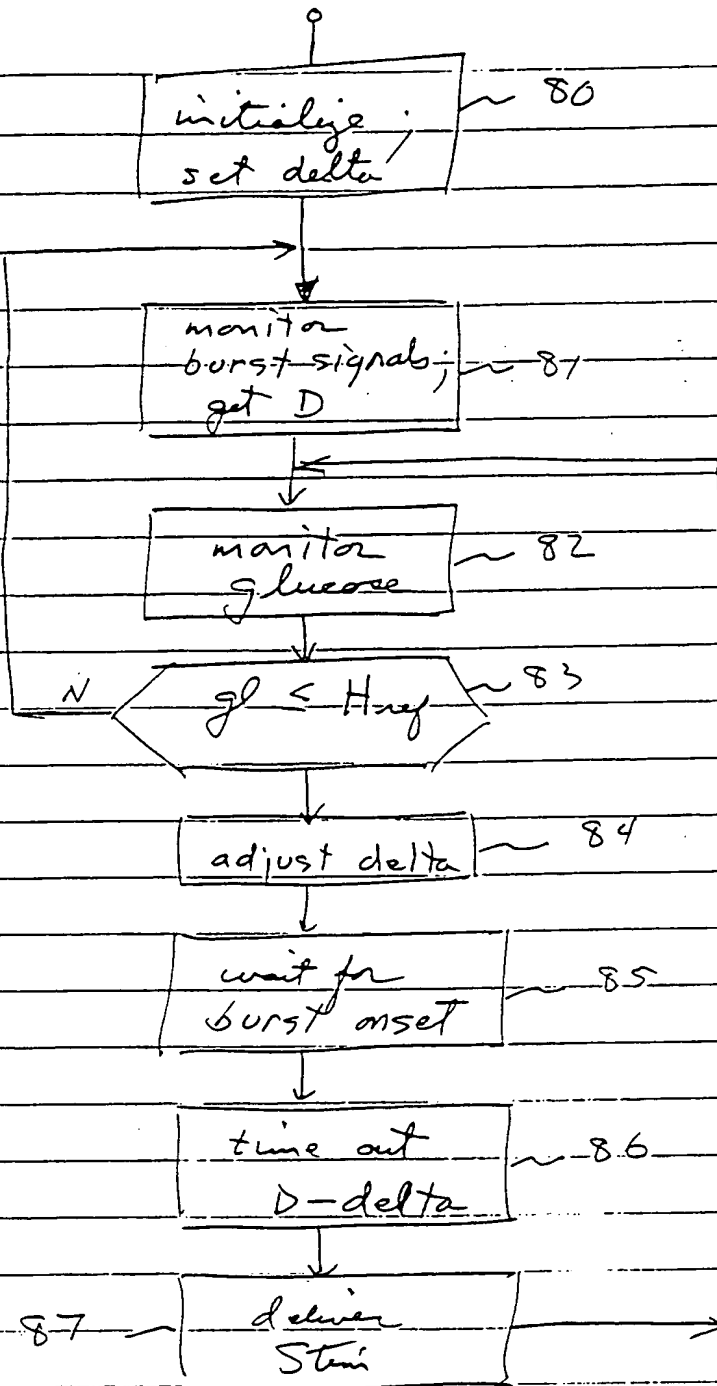 initialize;
set delta
80
monitor
burst signals;
get D
81
monitor
glucose
82
N
gl < Href
83
adjust delta
84
wait for
burst onset
85
time out
D-delta
86
87
deliver
Stim